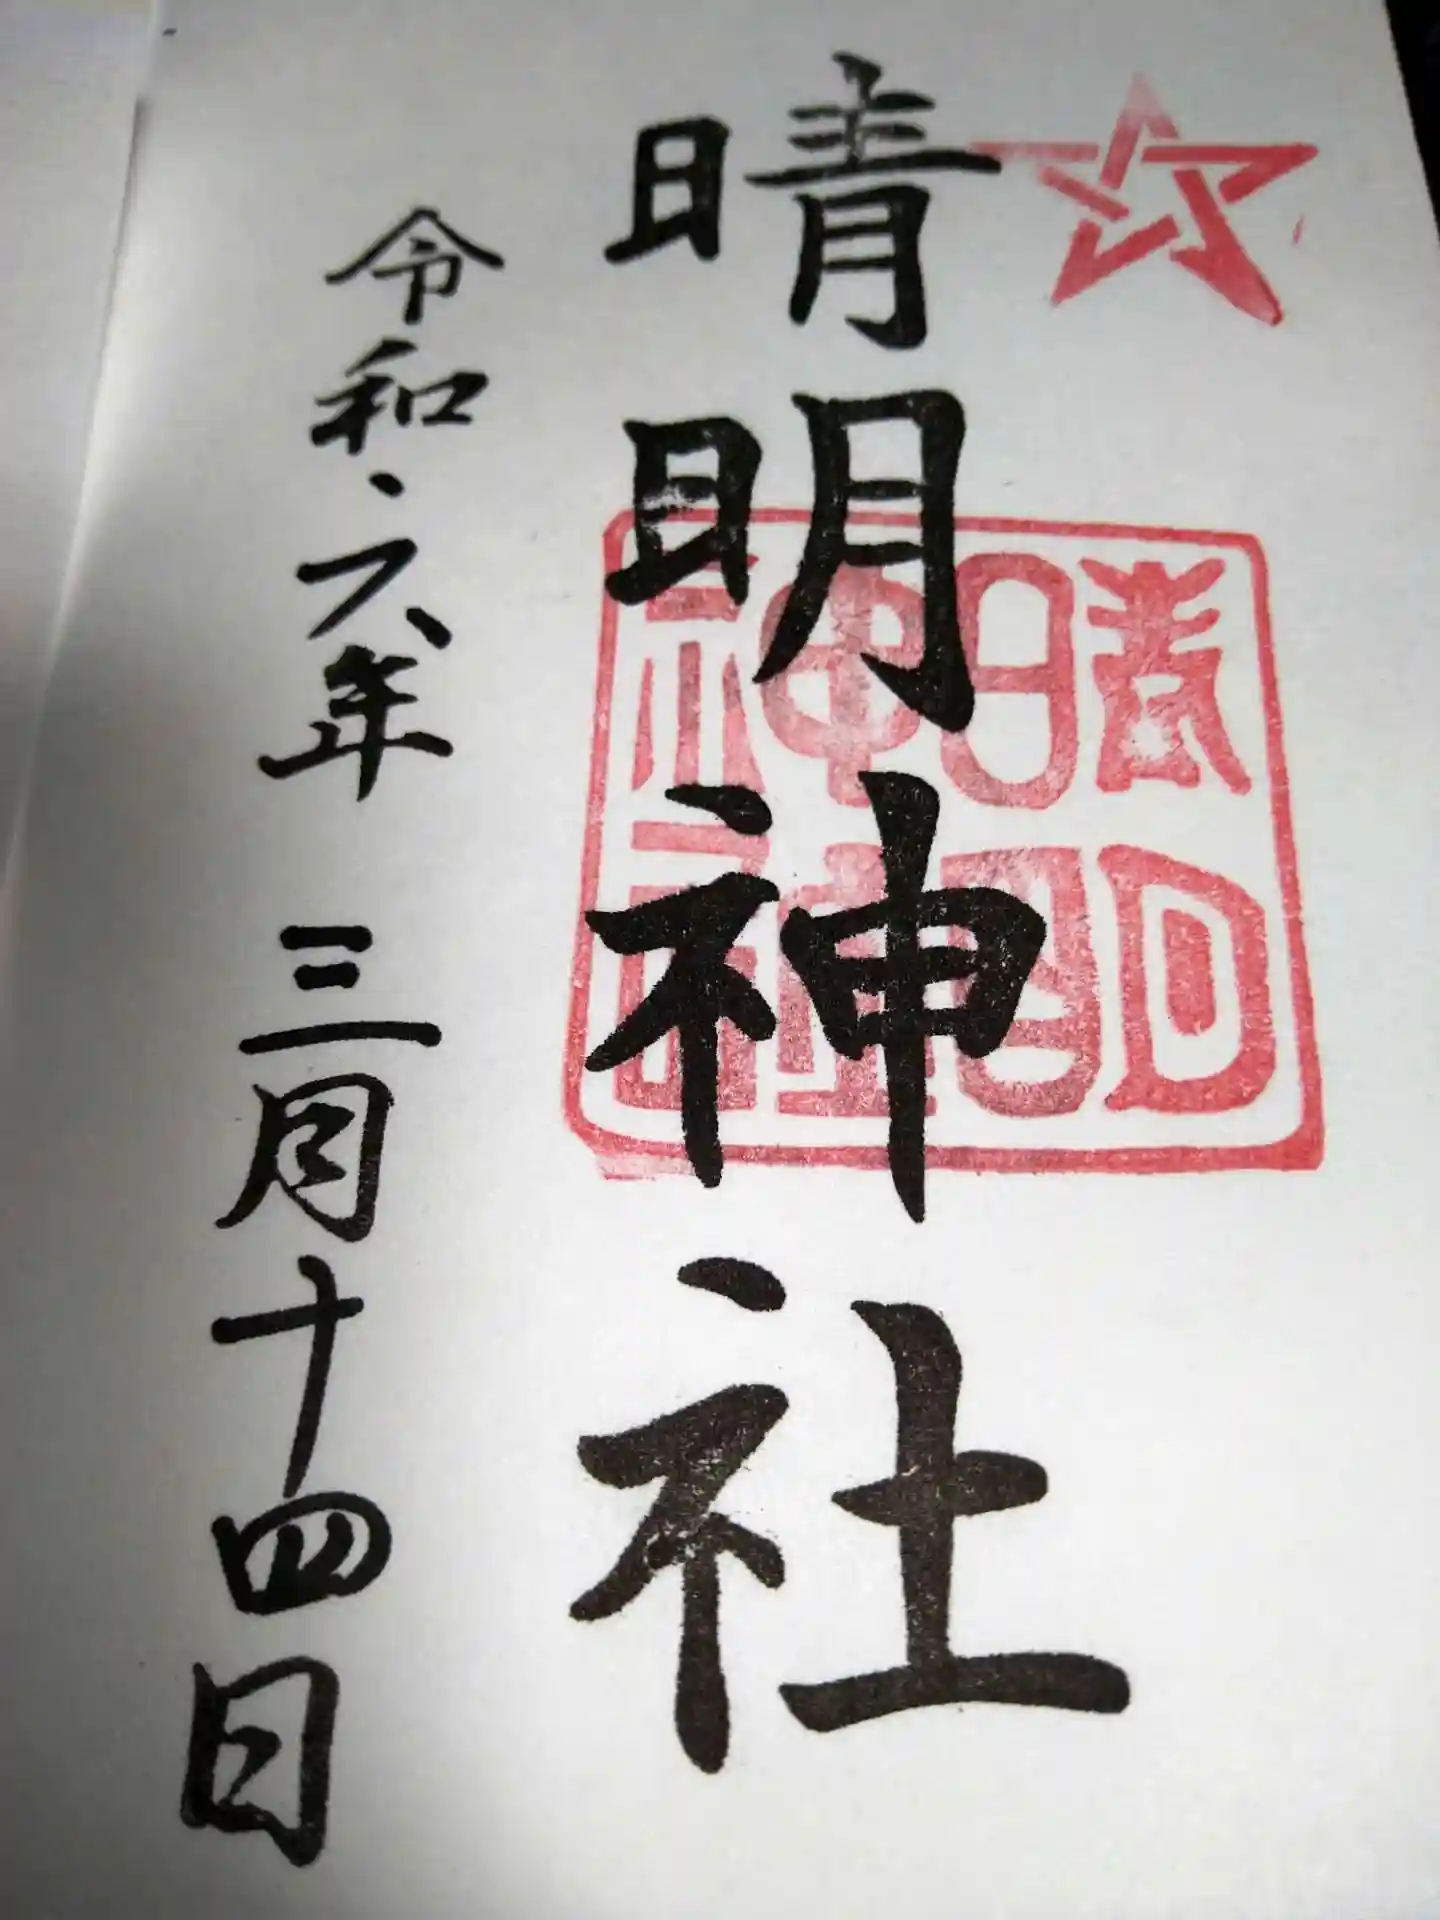 晴明神社
晴明
神社
令和六年 三月十四日